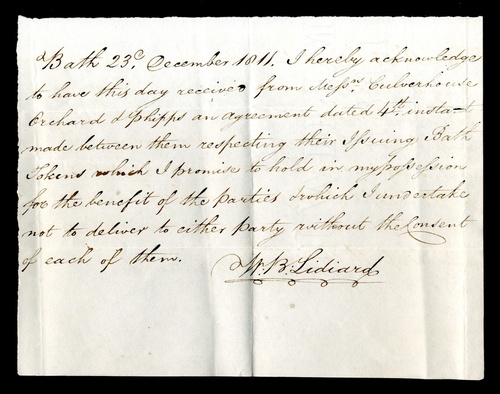 Bath 23d. December 1811. I hereby acknowledge
to have this day received from Messrs. Culverhouse
Orchard & Phipps an agreement dated 4th. instant
made between them respecting their Issuing Bath
Tokens which I promise to hold in my possession
for the benefit of the Parties & which I undertake
not to deliver to either party without the Consent
of each of them.
W. B. Lidiard